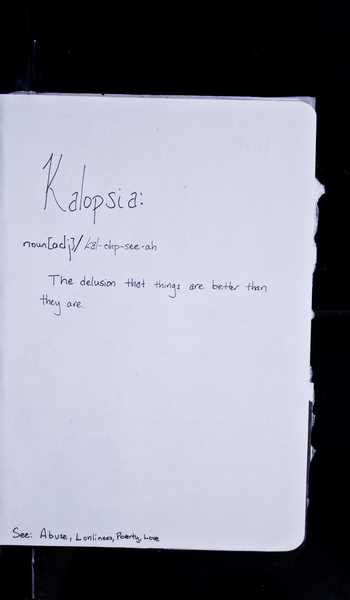 Kalopsia:
noun[adj]/kal-ohp-see-ah
The delusion that things are better than
they are.
See: Abuse, Lonliness, Poverty, Love